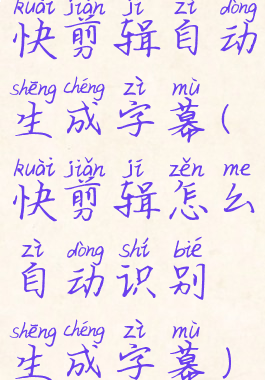 kuài jiǎn jí zì dòng
快剪辑自动
shēng chéng zì mù
生成字幕(
kuài jiǎn jí zěn me
快剪辑怎么
zì dòng shí bié
自动识别
shēng chéng zì mù
生成字幕)